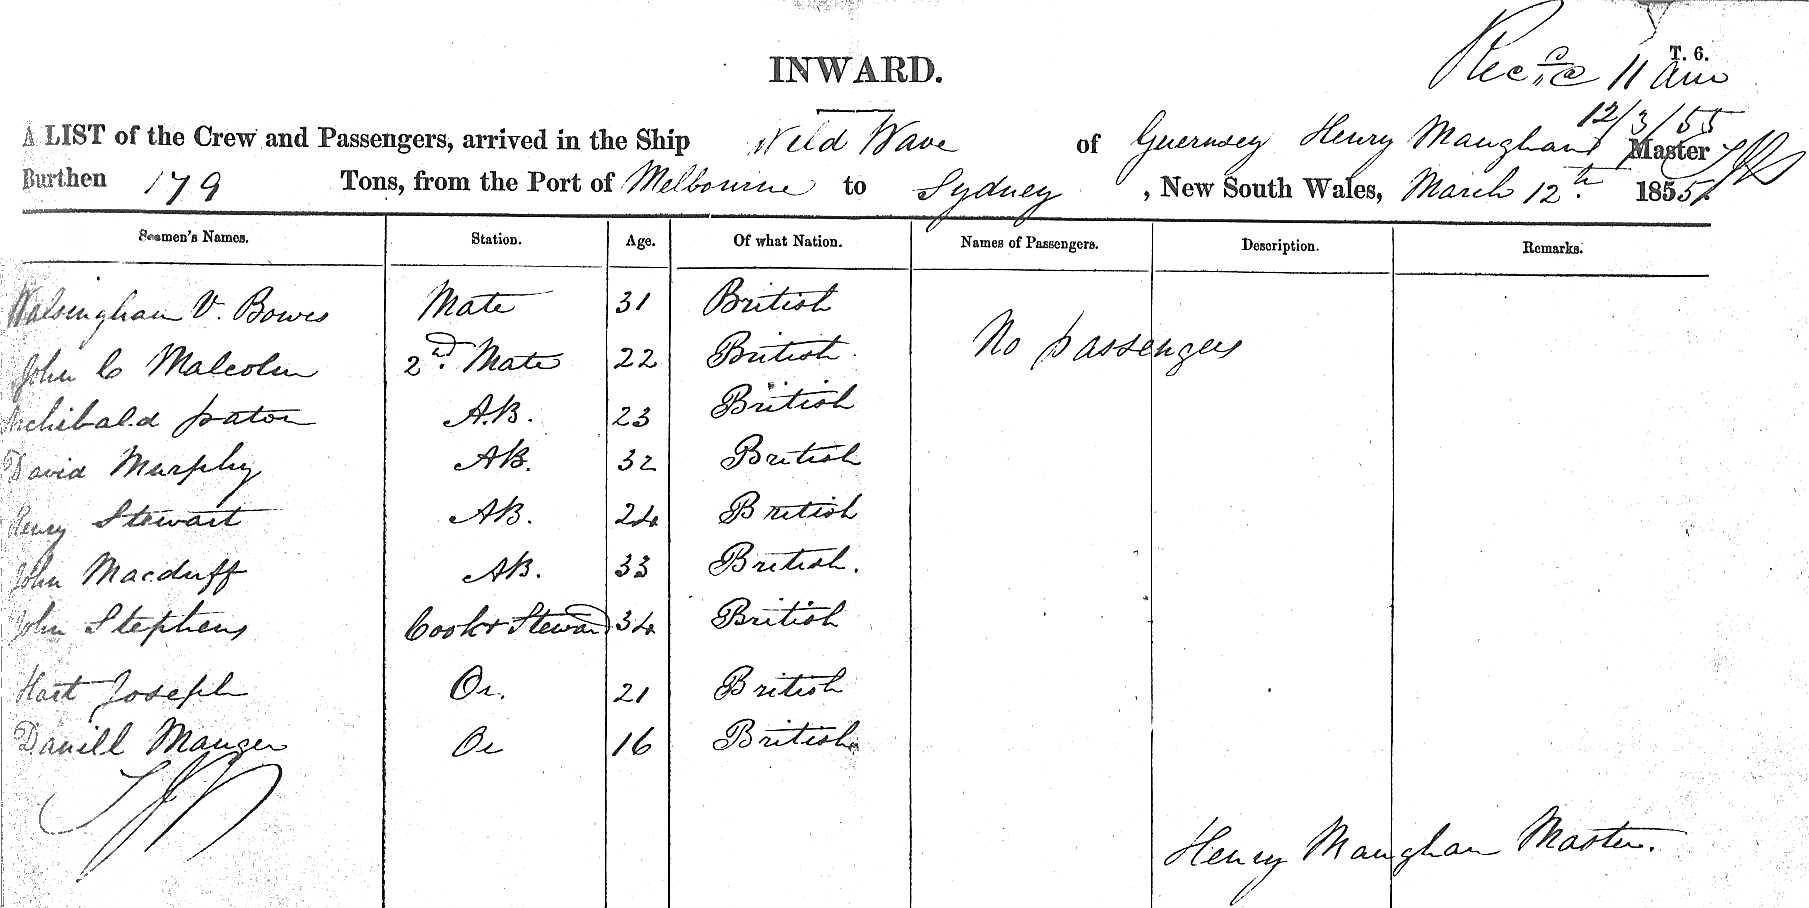 T. 6.
Rec'd 11 am
INWARD.
12/3/55
A LIST of the Crew and Passengers, arrived in the Ship Wild Wave of Guernsey Henry Maughan Master
Burthen 179 Tons, from the Port of Melbourne to Sydney, New South Wales, March 12th 1855.
Seamen's Names. Station. Age. Of what Nation. Names of Passengers. Description. Remarks.
Walsingham V. Bowes Mate 31 British
No passengers
John C Malcolm 2nd Mate 22 British.
Archibald paton A.B. 23 British
David Murphy AB. 32 British
Henry Stewart AB. 24 British
John Macduff AB. 33 British.
John Stephens Cook & Steward 34 British
Hart Joseph 21 British
Daniell Mauger 16 British
Henry Maughan Master.